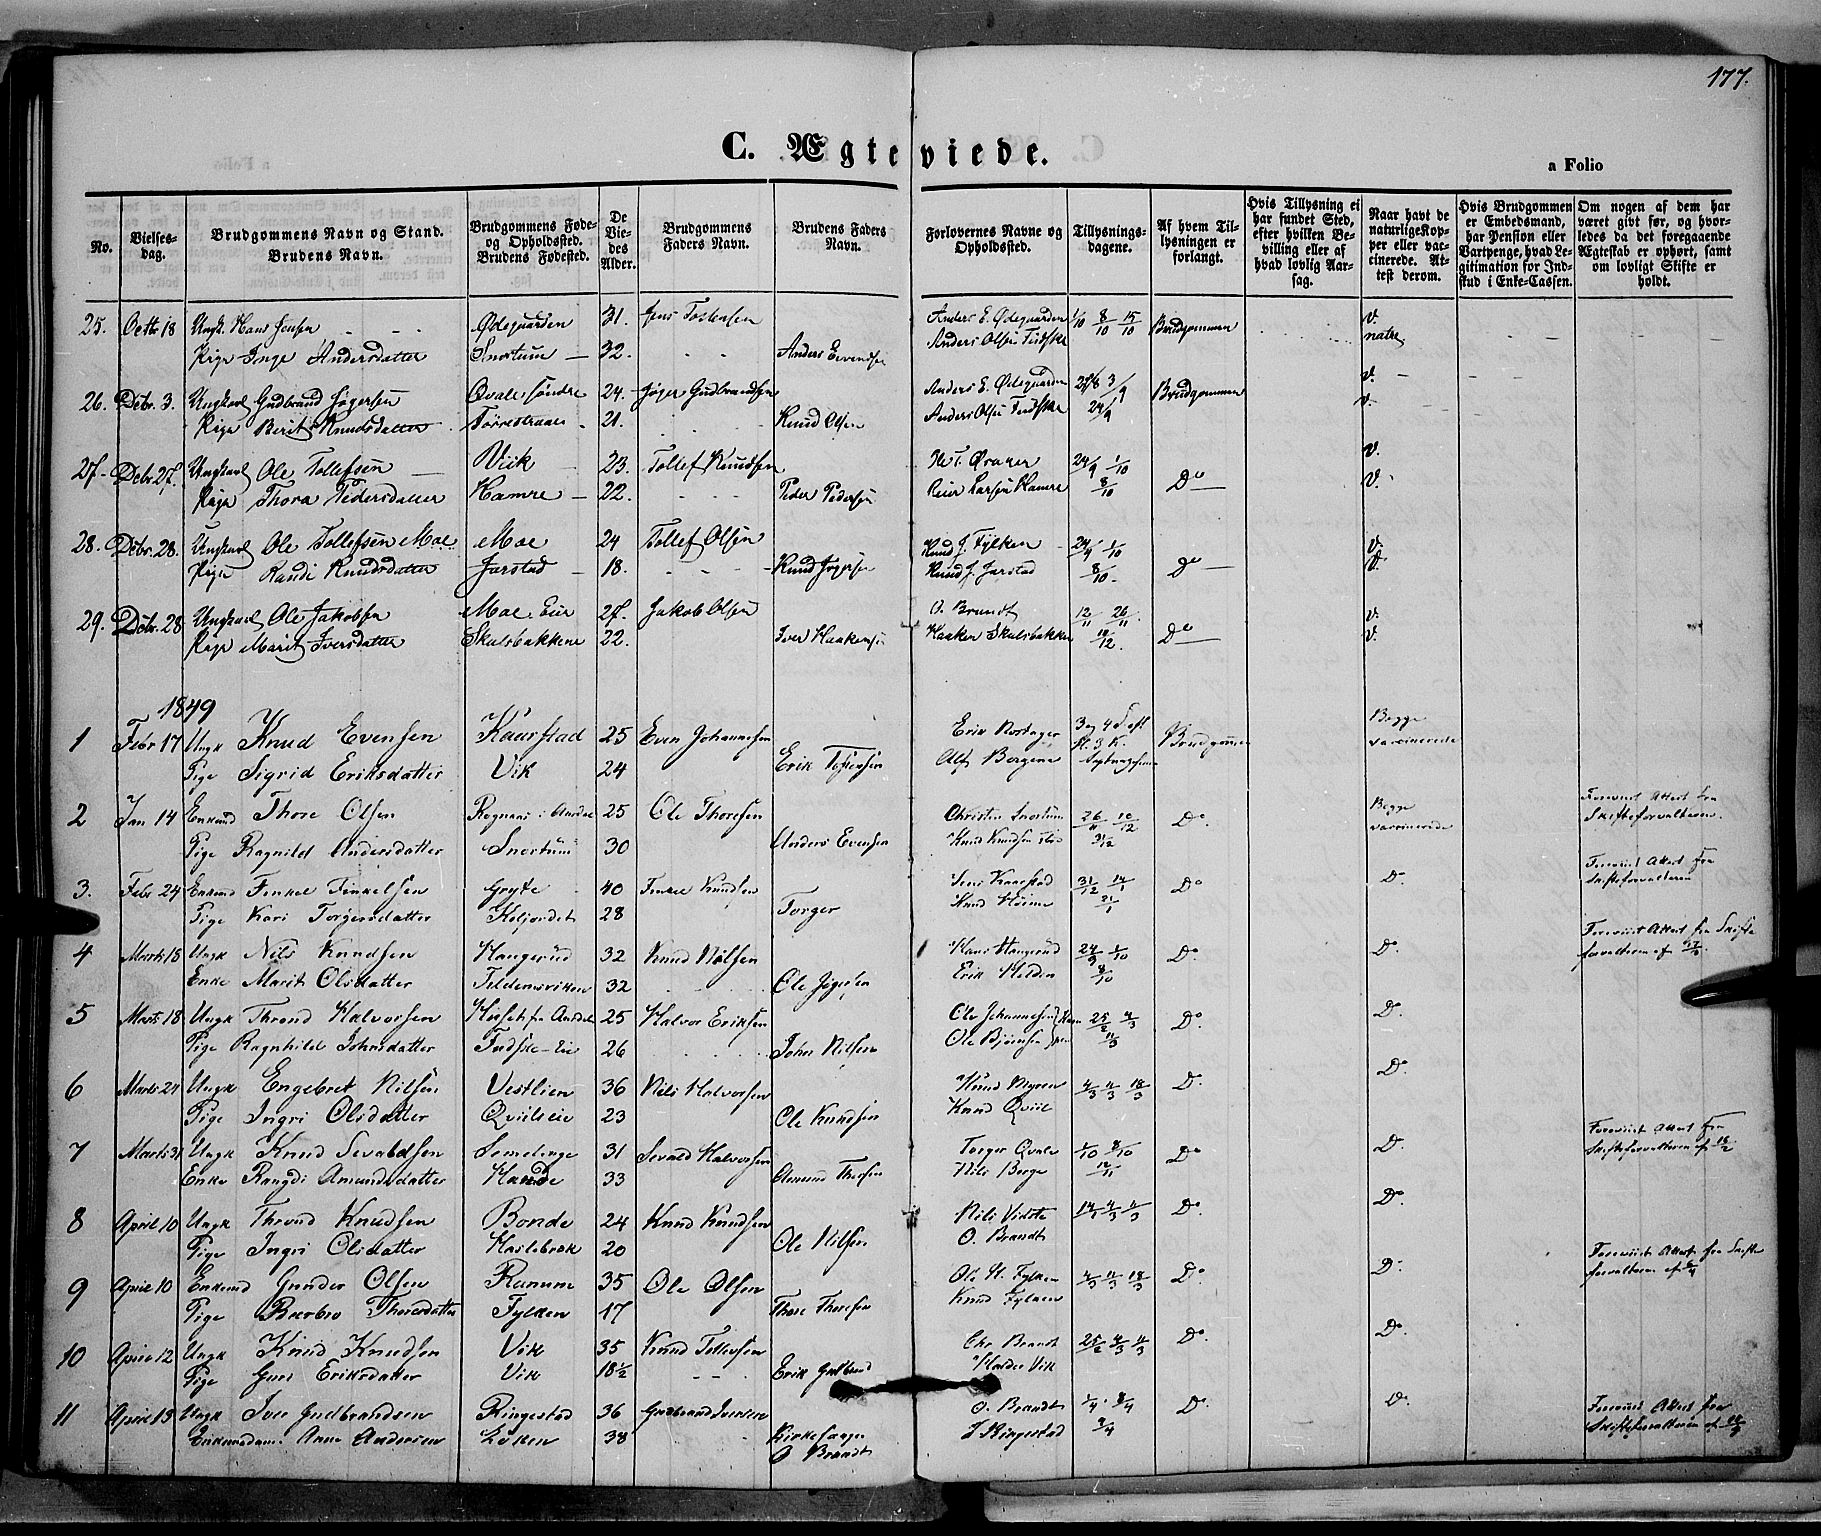 177.
C. Ægteviede.
a Folio
No. | Vielses-dag. | Brudgommens Navn og Stand. Brudens Navn. | Brudgommens Føde- og Opholdssted. Brudens Fødested. | De Viedes Alder. | Brudgommens Faders Navn. | Brudens Faders Navn. | Forlovernes Navne og Opholdssted. | Tillysnings-dagene. | Af hvem Tillysningen er forlangt. | Hvis Tillysning ei har fundet Sted, efter hvilken Bevilling eller af hvad lovlig Aarsag. | Naar havt de naturlige Kopper eller vaccinerede. Attest derom. | Hvis Brudgommen er Embedsmand, har Pension eller Vartpenge, hvad Legitimation for Indskud i Enke-Cassen. | Om nogen af dem har været givt før, og hvorledes da det foregaaende Ægteskab er ophørt, samt om lovligt Skifte er holdt.
25. Octbr 18 Ungk. Hans Jensen Ødegaarden 31. Jens Tostensen Anders E. Ødegaarden 1/10 8/10 15/10 Brudgommen v.
Pige Inge Andersdatter Snortum 32. Anders Evensen Anders Olsen Fødske natre
26. Debr. 3. Ungkarl Gudbrand Jøgersen Qvale søndre 24. Jøger Gudbrandsen Anders E. Ødegaarden 27/8 3/9 Brudgommen v.
Pige Berit Knudsdatter 21. Knud Olsen Anders Olsen Fødske 24/9 v.
27. Debr. 27. Ungkarl Ole Tollefsen Viik 23. Tollef Knudsen 24/9 1/10 v.
Pige Thora Pedersdatter Hamre 22. Peder Pedersen Larsen Hamre 8/10 Do v.
28. Debr. 28. Ungkarl Ole Tollefsen Moe Moe 24 Tollef Olsen Knud J. Fylken 24/9 1/10 v.
Pige Randi Knudsdatter Jarstad 18. Knud Jøgersen Knud J. Jarstad 8/10. Do v.
29. Debr. 28 Ungkarl Ole Jakobsen Moe Eier 27. Jakob Olsen O. Brandt 12/11 26/11 v.
Pige Marit Iversdatter Skulsbakkene 22. Iver Haakensen Haaken Skulsbakken 10/12. Do v.
1849
1 Febr 17 Ungk Knud Evensen Kaarstad 25 Even Johannesen Erik Rostager 3 og 4 S. Brudgommen Begge
Pige Sigrid Eriksdatter Vik 24 Erik Tostensen Alf Bergene vaccinerede
2 Jan 14 Enkemd Thore Olsen Rognaas i Aurdal 25 Ole Thoresen Christen Snortum 26/11 10/12 Do. Begge Forevist Attest fra
Pige Ragnild Andersdatter Snortum 30 Anders Evensen Knud Knudsen 31/12 vaccinerede Skifteforvalteren.
3. Febr 24 Enkemd Finkel Finkelsen Gryte 40 Finkel Knudsen Jens Kaarstad 31/12 14/1 Do Do. Forevist Attest fra
Pige Kari Torgersdatter Koljordet 28 Torger Knud 21/1 Skifteforvalteren
4 Marts 18 Ungk Nils Knudsen Haugerud 32 Knud Nilsen Hans Haugerud 24/9 1/10 Do. Do. Forevist Attest fra Skifte
Enke Marit Olsdatter Feldensviken 32 Ole Jøgersen Erik Helden 8/10 forvalteren af
5 Marts 18 Ungk Thrond Halvorsen Huset fra Aurdal 25 Halvor Eriksen Ole Johannesen 25/2 4/3 Do. Do.
Pige Ragnhild Johnsdatter Fødske-Eie 26 John Nilsen Ole Bjørnsen 11/3
6 Marts 24 Ungk Engebret Nilsen Vestlien 36 Nils Halvorsen Knud Myren 4/3 11/3 18/3 Do. Do.
Pige Ingri Olsdatter Qviileie 23 Ole Knudsen Knud Qviil
7 Marts 31 Ungk Knud Sevaldsen Semelenge 31 Sevald Halvorsen Torger Qvale 1/10 8/10 Do Do. Forevist Attest fra
Enke Rangdi Amundsdatter Hande 33 Amund Thorsen Nils Berge Skifteforvalteren af
8 April 10 Ungk Thrond Knudsen Bonde 24 Knud Knudsen Nils Vidste 4/3 11/3 Do. Do
Pige Ingri Olsdatter Haslebræk 20 Ole Nilsen O. Brandt
9 April 10 Enkemd Gunder Olsen Ranum 35 Ole Olsen Ole H. Fylken 4/3 11/3 18/3 Do. Do. Forevist Attest fra Skifte
Pige Barbro Thoresdatter Fylken 17 Thore Thoresen Knud Fylken forvalteren af
10 April 12 Ungk Knud Knudsen Vik 35 Knud Tollefsen Chr Brandt 25/2 4/3 11/3 Do. Do.
Pige Guri Eriksdatter Vik 18½ Erik Gulbrand Vik
11 April 13 Ungk Iver Gudbrandsen Ringestad 36 Gudbrand Iversen O. Brandt 1/4. 8/4 Do. Do. Forevist Attest fra
Anne Andersen Løken 38 Kirkesanger I Ringestad 9/4 Skifteforvalteren af
O Brandt